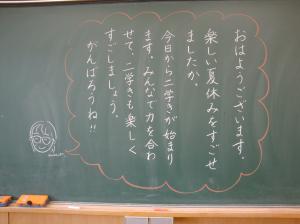 おはようございます。
楽しい夏休みをすごせ
ましたか。
今日から二学きが始まり
ます。みんなで力を合わ
せて、二学きも楽しく
すごしましょう。
がんばろうね!!